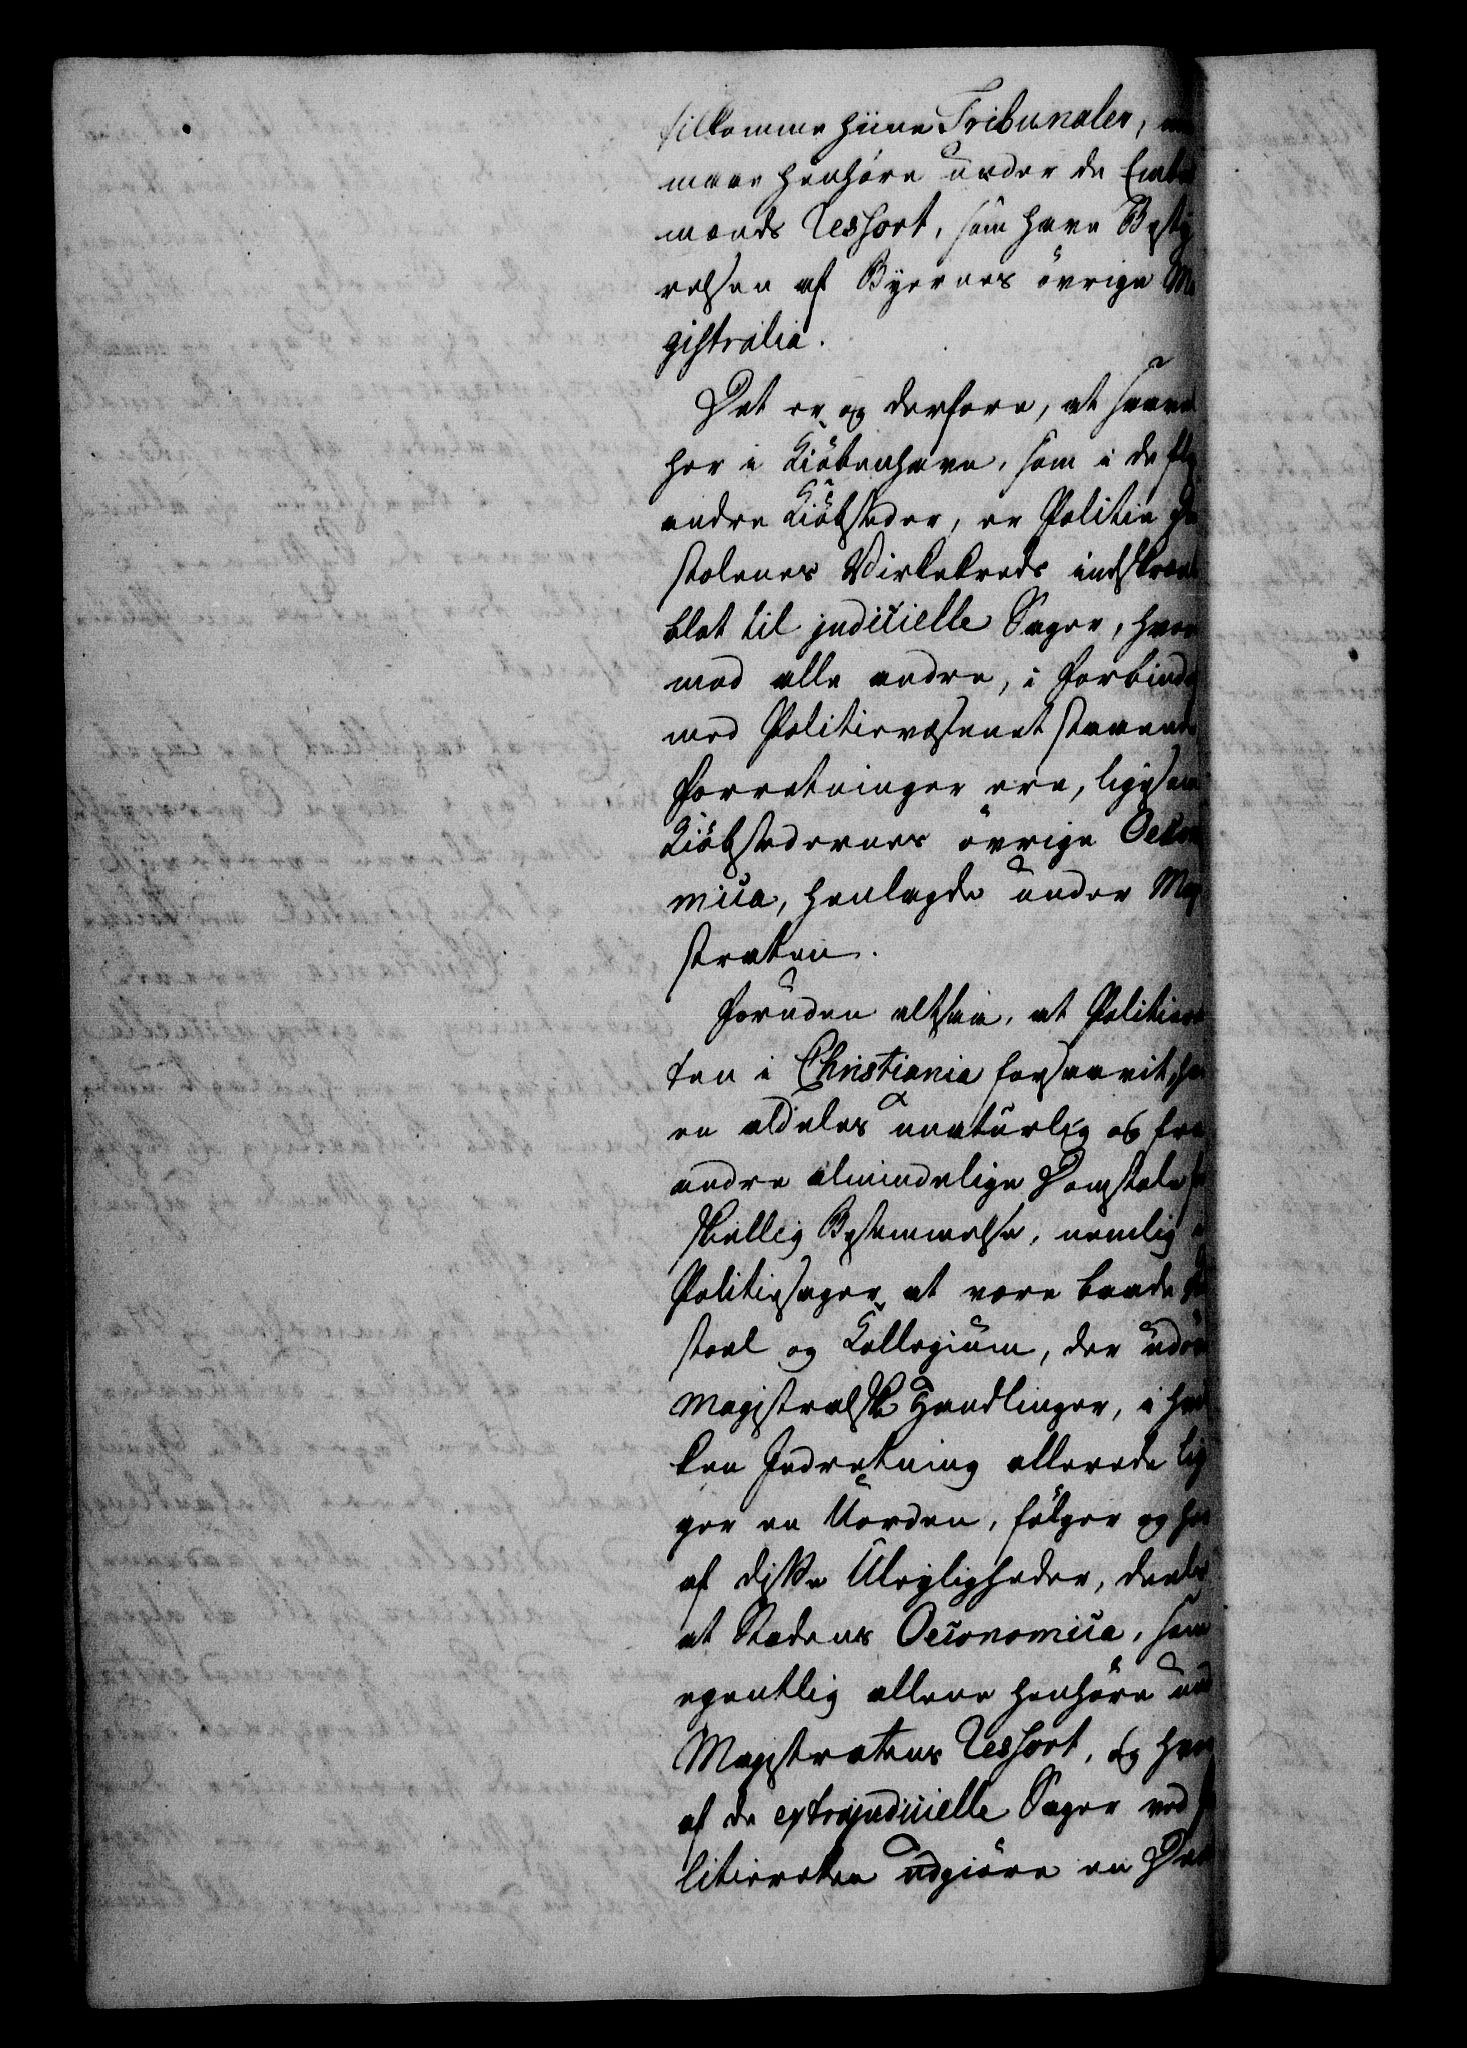 tilkomme hiine Tribunaler,
maae henhøre under de Embeds
mænds Ressort, som have Besty
relsen af Byernes øvrige Ma
gistralia.
Det er og derfore, at saavel
her i Kiöbenhavn, som i de fle
andre Kiöbstæder, er Politie
stolenes Virkekreds indskrænk
blot til judicielle Sager, hvor
mod alle andre, i Forbinde
med Politievæsenet staaende
Forretninger ere, ligesom
Kiöbstedernes övrige Oecono
mica, henlagde under Magi
straten.
Foruden altsaa, at Politieret
ten i Christiania forsaavit, har
en aldeles unaturlig og fra
andre almindelige Domstole for
skiellig Bestemmelse, nemlig i
Politiesager at være baade Dom
stoel og Collegium, der udøver
magistralske Handlinger, i hvil
ken Indretning allerede lig
ger en Uorden, følger og her
af disse Uleyligheder, deels
at Stadens Oeconomica, som
egentlig allene henhøre und
Magistratens Ressort, og hvor
af de extrajudicielle Sager ved Po
litieretten udgiøre en Deel